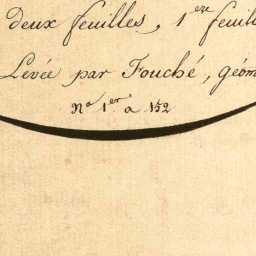 deux feuilles, 1ere feuill
Levée par Fouché, géom
No 1er a 152